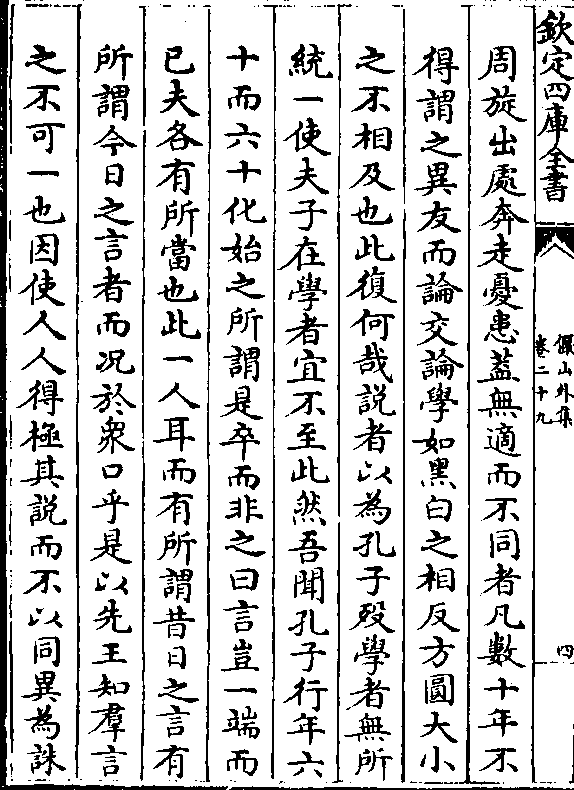 欽定四庫全書
儼山外集
卷二十九
四
周旋出處奔走憂患蓋無適而不同者凡數十年不
得謂之異友而論交論學如黑白之相反方圓大小
之不相及也此復何哉説者以為孔子殁學者無所
統一使夫子在學者宜不至此然吾聞孔子行年六
十而六十化始之所謂是卒而非之曰言豈一端而
已夫各有所當也此一人耳而有所謂昔日之言有
所謂今日之言者而况於衆口乎是以先王知羣言
之不可一也因使人人得極其説而不以同異為誅